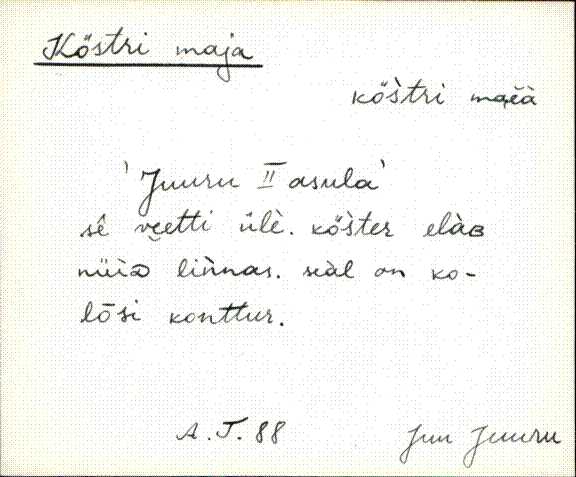 Köstri maja
kös̀tri maèà
'Juuru II asula'
sê veetti ülè. kös̀ter elàʙ
nüìᴅ lin̂nas. seàl on ko-
lōsi konttur.
A. T. 88
Juu Juuru